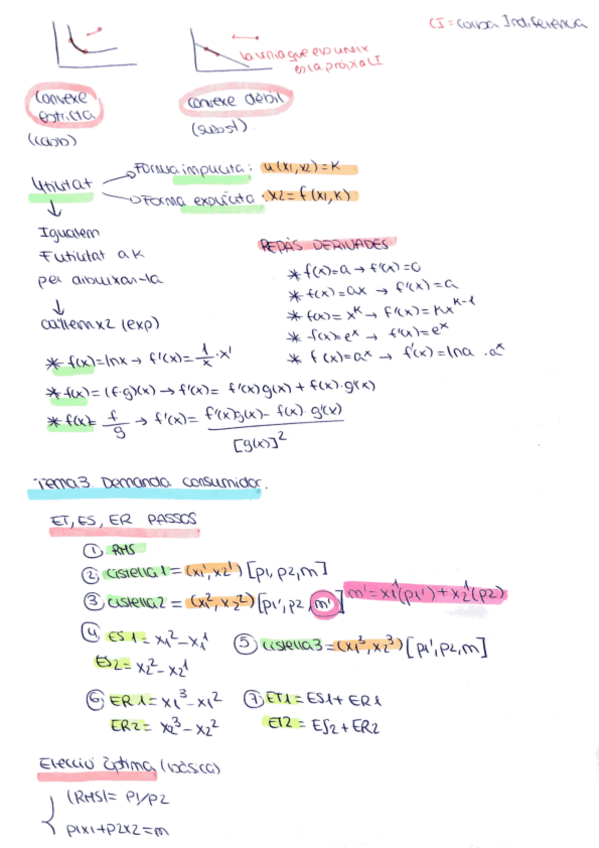 CI = corba Indiferència
la línia que els uneix
és la pròpia CI
Convexe
estricta
(cobb)
convexe dèbil
(subst)
Utilitat
Forma implícita: u(x1,x2)=K
Forma explícita: x2=f(x1,K)
Igualem
F.utilitat a K
per dibuixar-la
aïllem x2 (exp)
REPÀS DERIVADES
* f(x)=a → f'(x)=0
* f(x)=ax → f'(x)=a
* f(x)=x^K → f'(x)=Kx^K-1
* f(x)=e^x → f'(x)=e^x
* f(x)=a^x → f'(x)=lna · a^x
* f(x)=lnx → f'(x)=1/x · x'
* f(x)=(f·g)(x) → f'(x)= f'(x)g(x)+f(x)·g'(x)
* f(x)= f/g → f'(x)= f'(x)g(x)-f(x)·g'(x) / [g(x)]²
Tema 3 Demanda consumidor.
ET, ES, ER PASSOS
① RMS
② cistella 1 = (x1', x2') [p1, p2, m]
③ cistella 2 = (x1², x2²) [p1', p2, m'] m'= x1¹(p1')+x2¹(p2)
④ ES1 = x1²-x1¹
ES2 = x2²-x2¹
⑤ cistella 3 = (x1³, x2³) [p1', p2, m]
⑥ ER1 = x1³-x1²
ER2 = x2³-x2²
⑦ ET1 = ES1+ER1
ET2 = ES2+ER2
Elecció òptima (bàsica)
|RMS| = p1/p2
p1x1+p2x2=m